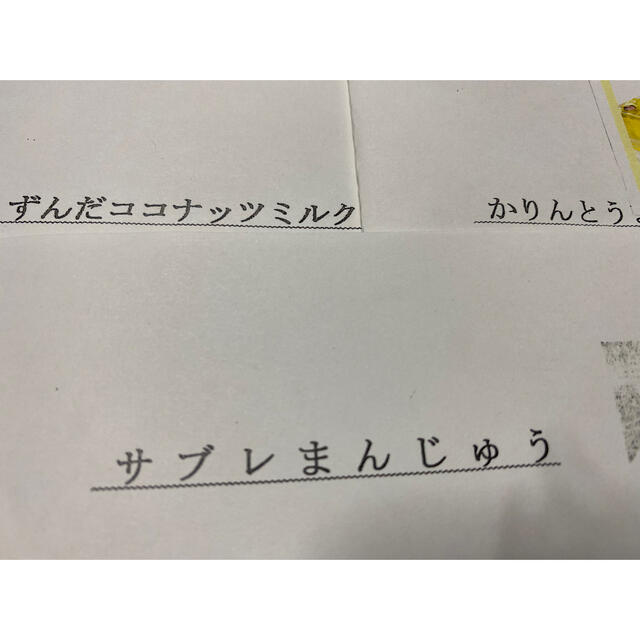 ずんだココナッツミルク
かりんとう
サブレまんじゅう